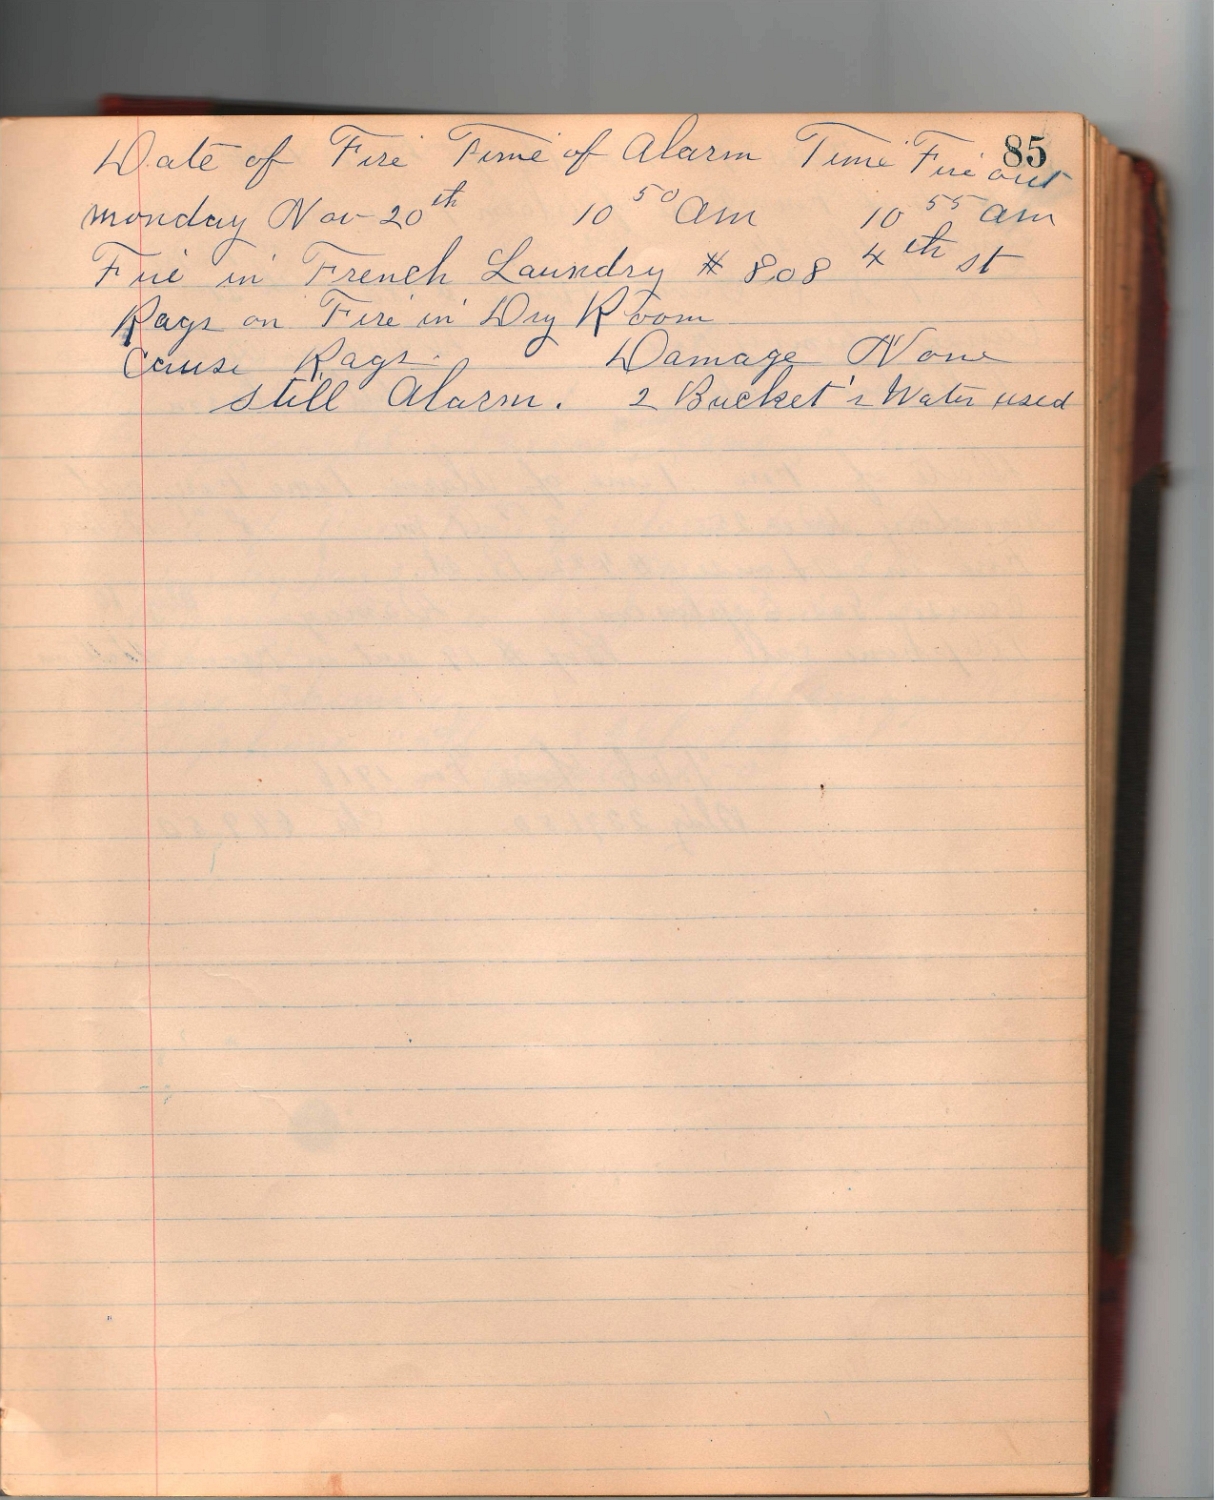 85
Date of Fire Time of Alarm Time Fire out
monday Nov 20th 10 50 am 10 55 am
Fire in French Laundry # 808 4th st
Rags on Fire in Dry Room
Cause Rags. Damage None
still Alarm. 2 Bucket's Water used